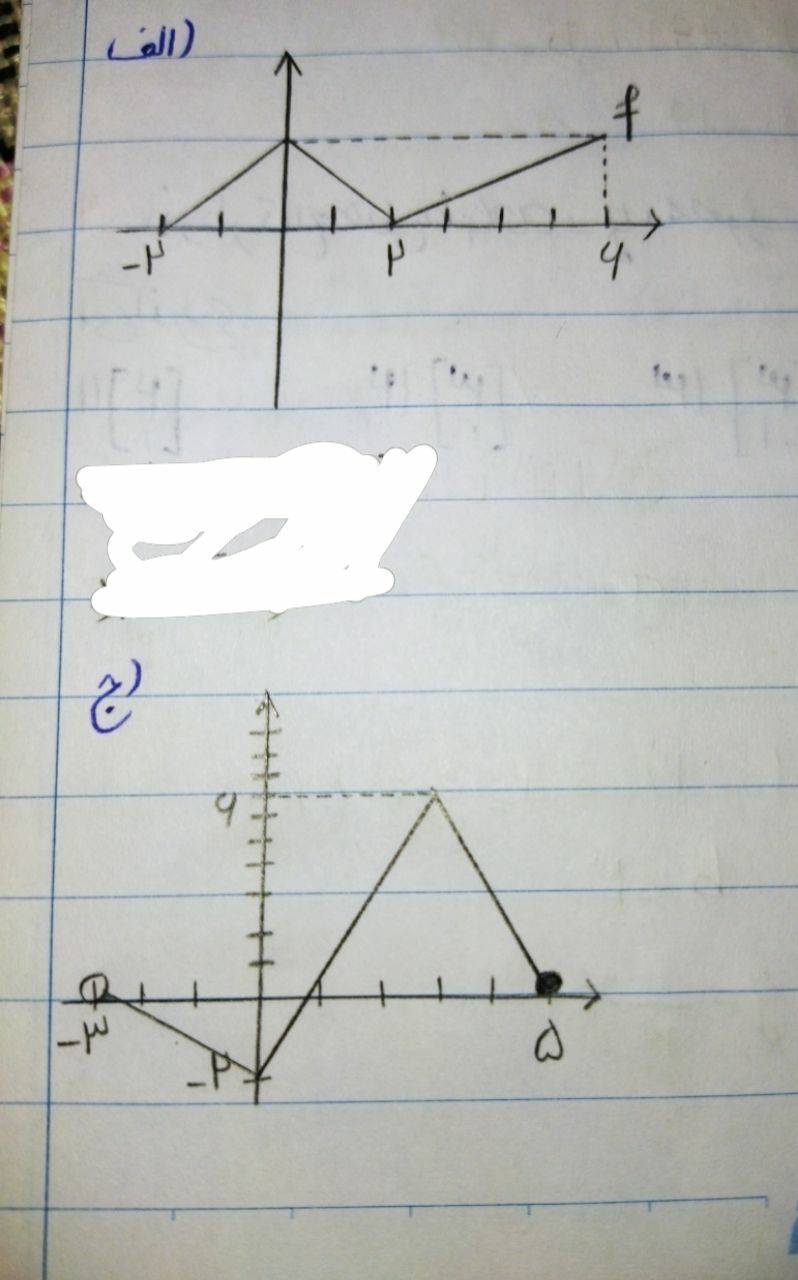 الف)
f
-۲ ۲ ۶
ج)
۶
-۳ ۵
-۲